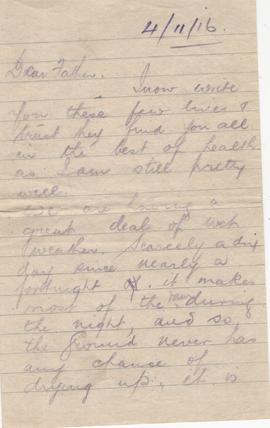 4/11/16.
Dear Father.
I now write
you these few lines &
trust they find you all
in the best of health
as I am still pretty
well.
We are having a
great deal of wet
weather. Scarcely a dry
day since nearly a
fortnight. it makes
most of the during
the night, and so
the ground never has
any chance of
drying up, it is